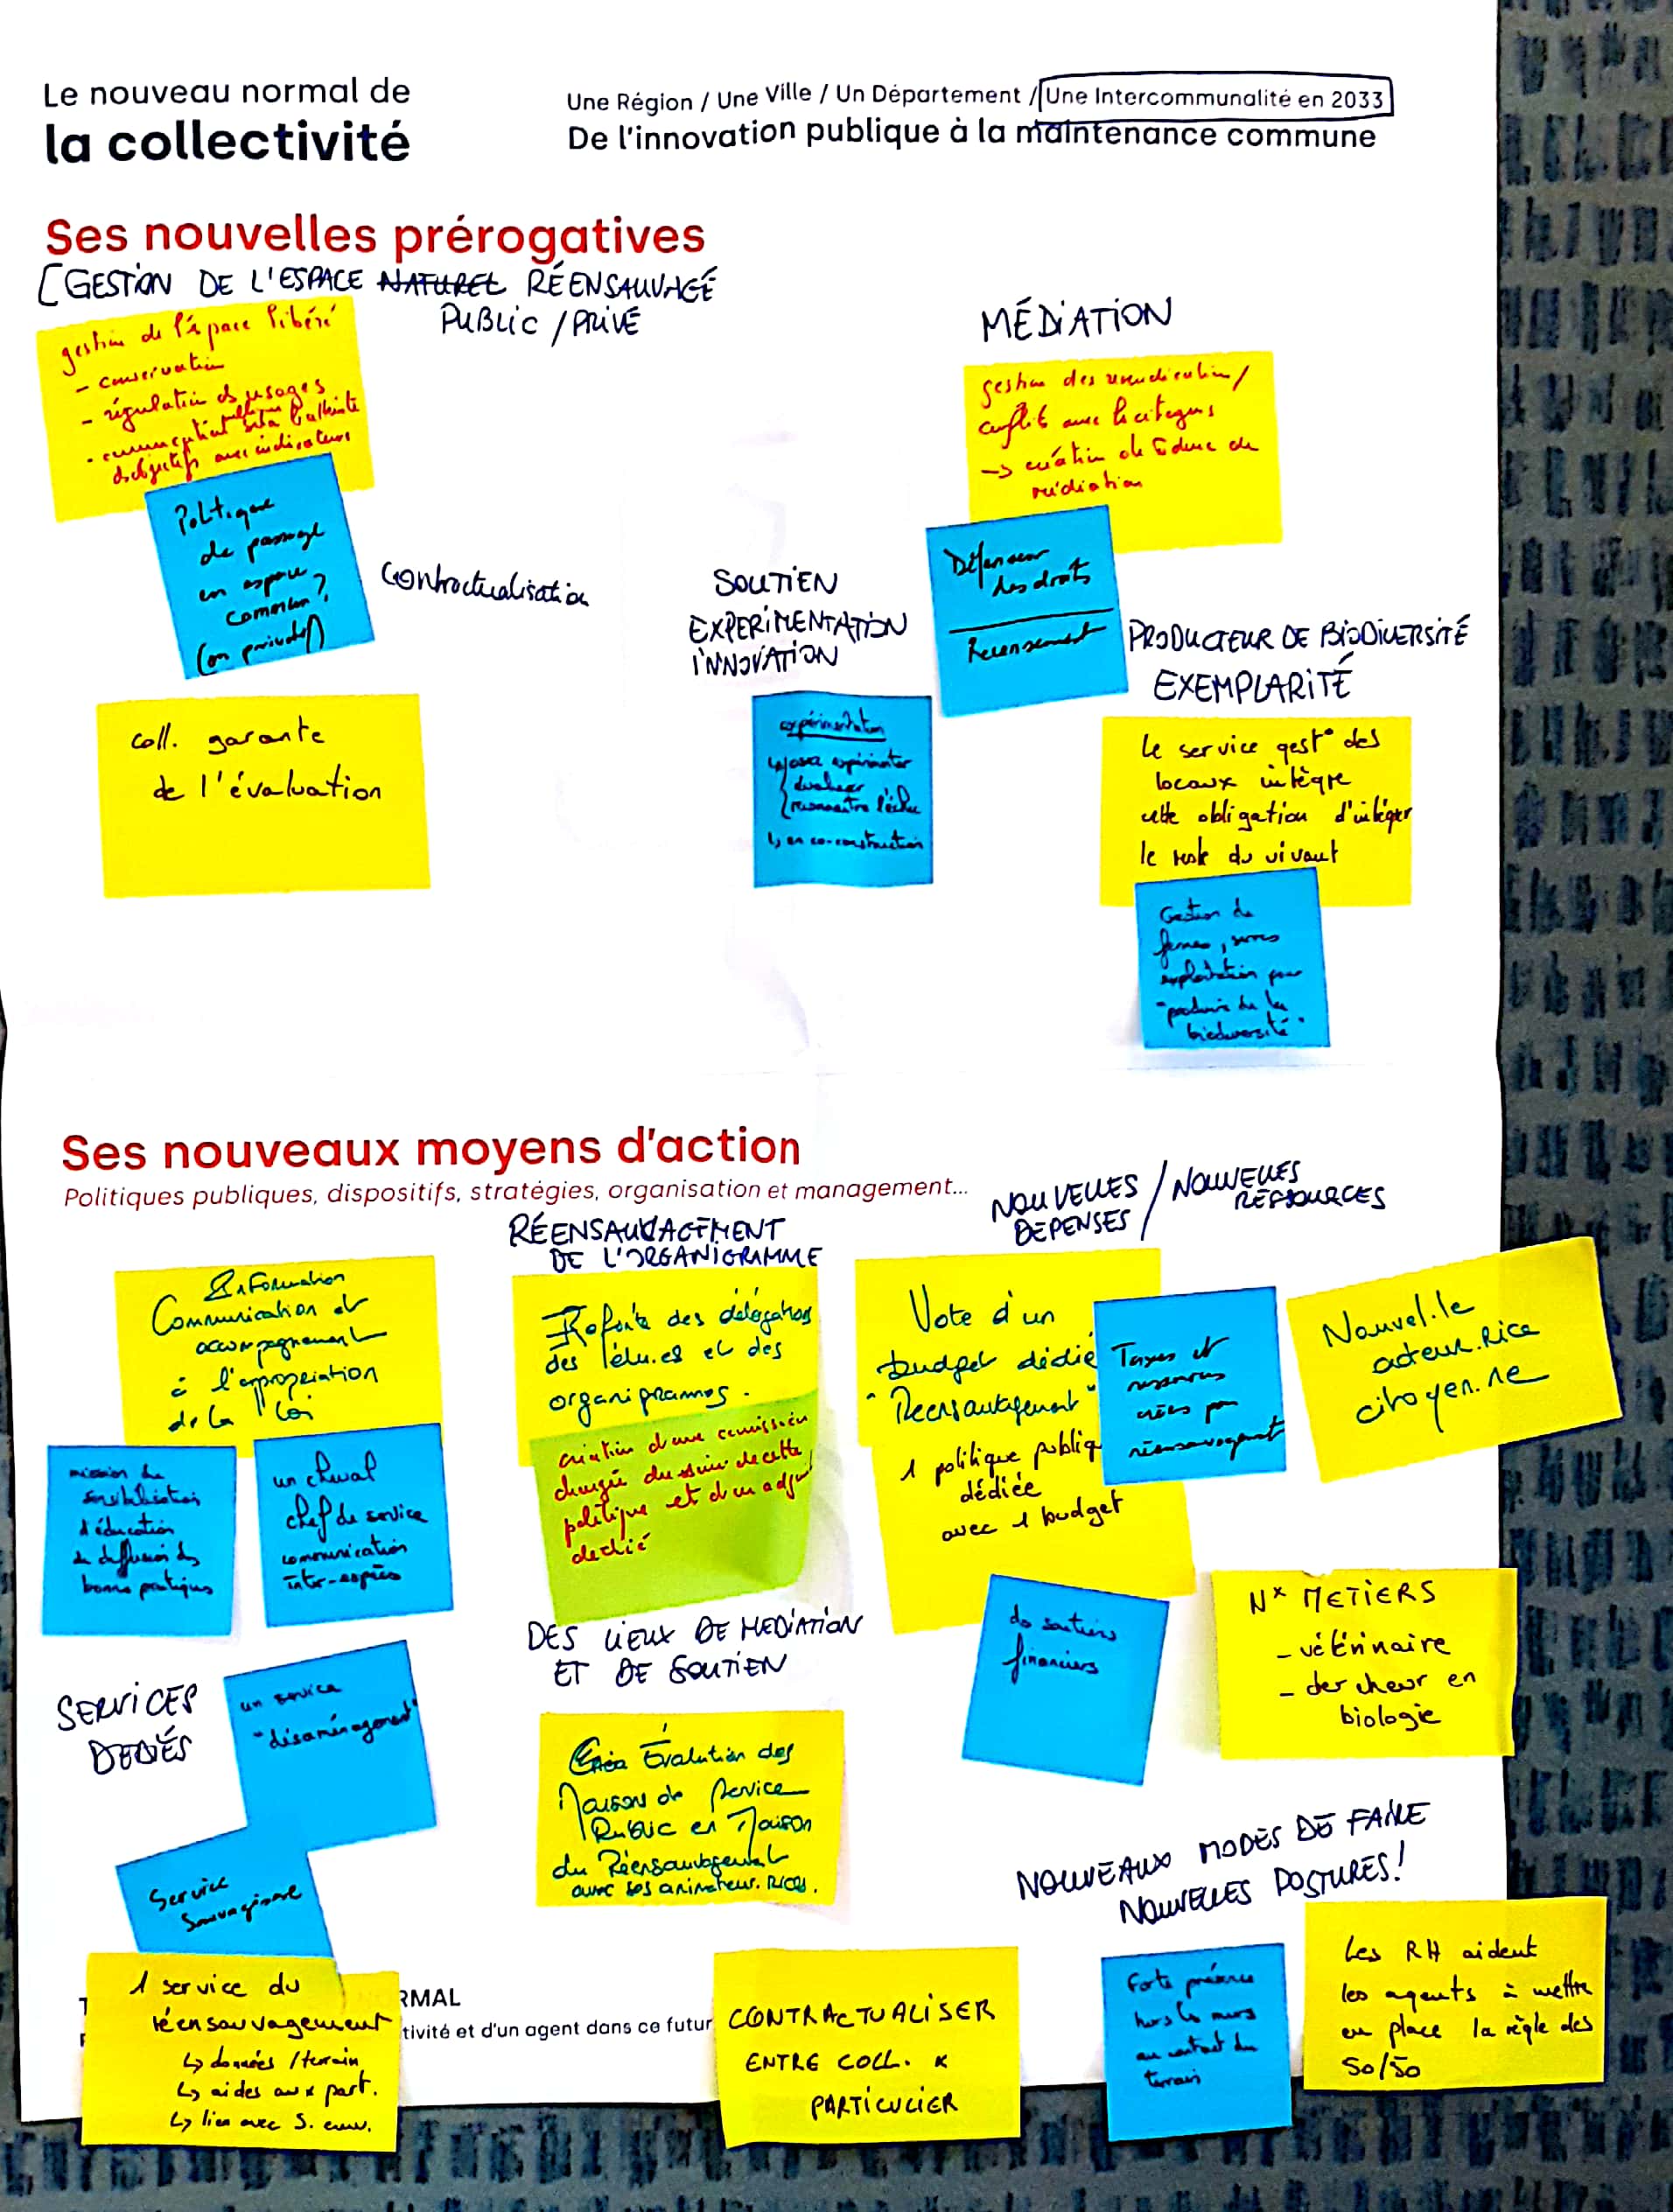 Le nouveau normal de
la collectivité
Une Région / Une Ville / Un Département / Une Intercommunalité en 2033
De l'innovation publique à la maintenance commune
Ses nouvelles prérogatives
[GESTION DE L'ESPACE NATUREL RÉENSAUVAGÉ
PUBLIC / PRIVÉ
gestion de l'espace libéré
- conservation
- régulation des usages
d'objectifs avec indicateurs
Politique
de passage
en espace
commun?
(on privatif)
Contractualisation
coll. garante
de l'évaluation
SOUTIEN
EXPERIMENTATION
INNOVATION
expérimentation
↳ oser expérimenter
évaluer
reconnaître l'échec
↳ en co-construction
MÉDIATION
gestion des revendication/
conflits avec les citoyens
→ création de
médiation
Défenseur
des droits
Recensement
PRODUCTEUR DE BIODIVERSITÉ
EXEMPLARITÉ
Le service gest° des
locaux intègre
cette obligation d'intégrer
le reste du vivant
Gestion de
fermes,
exploitation pour
"produire de la
biodiversité"
Ses nouveaux moyens d'action
Politiques publiques, dispositifs, stratégies, organisation et management...
Information
Communication et
accompagnement
à l'appropriation
de la loi
mission de
sensibilisation
d'éducation
de diffusion des
bonnes pratiques
un cheval
chef de service
communication
inter-espèces
SERVICES
DEDIÉS
un service
"désaménagement"
Service
Sauvagisme
1 service du
réensauvagement
↳ données / terrain
↳ aides aux part.
↳ lien avec S. env.
RÉENSAUVAGEMENT
DE L'ORGANIGRAMME
Refonte des délégations
des élu.es et des
organigrammes.
création d'une commission
chargée du suivi de cette
politique et d'un adj
dédié
DES LIEUX DE MEDIATION
ET DE SOUTIEN
Créa Évolution des
Maison de Service
Public en Maison
du Réensauvagement
avec ses animateur.rices.
NOUVELLES / NOUVELLES
DEPENSES / RESSOURCES
Vote d'un
budget dédié
"Réensauvagement"
1 politique publiq
dédiée
avec 1 budget
Taxes et
ressources
créées par
réensauvagement
Nouvel.le
acteur.rice
citoyen.ne
des soutiens
financiers
Nx METIERS
- vétérinaire
- chercheur en
biologie
NOUVEAUX MODES DE FAIRE
NOUVELLES POSTURES!
Forte présence
hors les murs
au contact du
terrain
Les RH aident
les agents à mettre
en place la règle des
50/50
CONTRACTUALISER
ENTRE COLL. &
PARTICULIER
RMAL
tivité et d'un agent dans ce futur